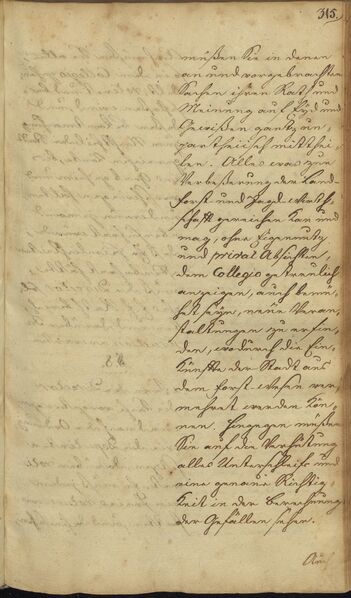 315.
müßen Sie in denen
an und vorgebrachten
Sachen ihren Rath und
Meinung auf Eyd und
Gewißen gantz un,
partheiisch mitthei,
len. Alles was zur
Verbeßerung der Land-
forst und Jagd-wirth,
schafft gereichen kan und
mag, ohne Eigennutz
und privat Absichten,
dem Collegio getreulich
anzeigen, auch bemü,
het seyn, neüe Veran,
staltungen zu erfin,
den, wodurch die Ein,
Künffte der Stadt aus
dem forst-wesen ver,
mehret werden kön,
nen. Hingegen müßen
Sie auf die Verhütung
alles Unterschleifs und
eine genaue Richtig,
keit in der Berechnung
der Gefällen sehen.